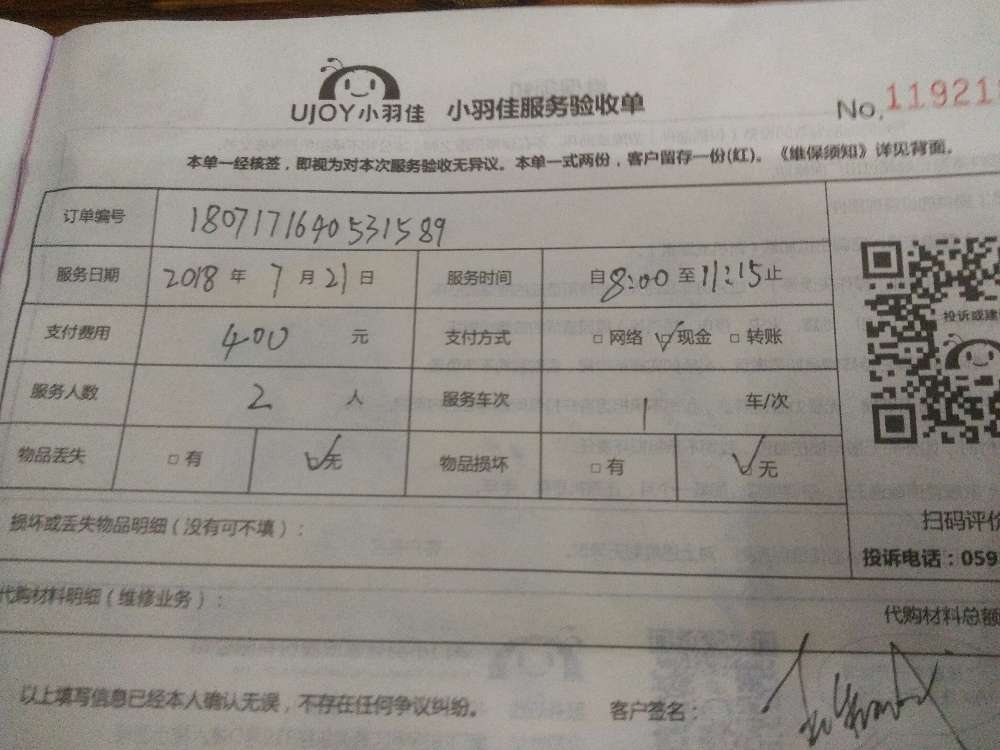 UJOY小羽佳 小羽佳服务验收单 No.119211
本单一经核签，即视为对本次服务验收无异议。本单一式两份，客户留存一份(红)。《维保须知》详见背面。
订单编号 1807171640531589
服务日期 2018 年 7 月 21 日 服务时间 自 8:00 至 11:15 止
支付费用 400 元 支付方式 □ 网络 ☑ 现金 □ 转账
服务人数 2 人 服务车次 1 车/次
物品丢失 □ 有 ☑ 无 物品损坏 □ 有 ☑ 无
投诉或建
损坏或丢失物品明细（没有可不填）：
扫码评价
投诉电话：059
代购材料明细（维修业务）：
代购材料总额
以上填写信息已经本人确认无误，不存在任何争议纠纷。 客户签名：